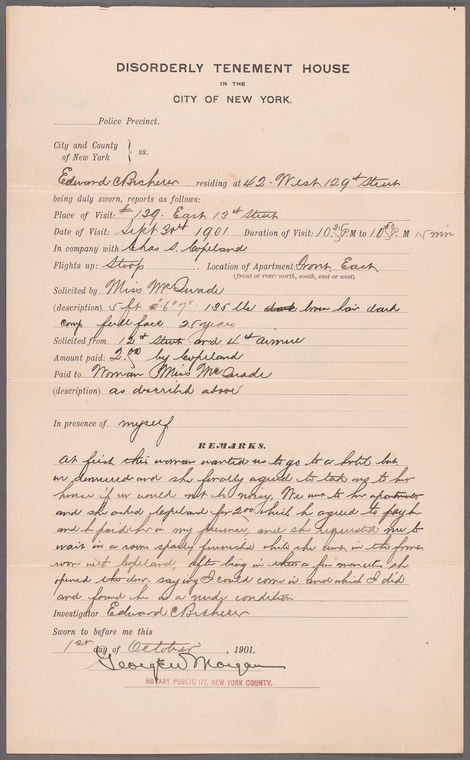 DISORDERLY TENEMENT HOUSE
IN THE
CITY OF NEW YORK.
Police Precinct.
City and County
of New York } ss.
Edward C Becherer residing at 42. West 129th Street
being duly sworn, reports as follows:
Place of Visit: # 139. East 13th Street
Date of Visit: Sept 30th 1901 Duration of Visit: P M to P. M 15 min
In company with Chas S. Copeland
Flights up: Stoop Location of Apartment Front East
(front or rear: north, south, east or west)
Solicited by Miss McQuade
(description) 5 ft 135 lbs dark brown hair dark
comp full face 25 years
Solicited from 12th Street and 4th Avenue
Amount paid: 2.00 by Copeland
Paid to Woman Miss McQuade
(description) as described above
In presence of myself
REMARKS.
At first this woman wanted us to go to a hotel but
we demurred and she finally agreed to take us to her
house if we would not be noisy. We went to her apartments
and she asked Copeland for 2.00 which he agreed to pay her
and he paid her in my presence, and she requested me to
wait in a room while she went in the front
room with Copeland, after being in there a few minutes she
opened the door, saying I could come in and which I did
and found her in a nude condition
Investigator Edward C Becherer
Sworn to before me this
1st day of October, 1901.
George W Morgan
NOTARY PUBLIC 117, NEW YORK COUNTY.